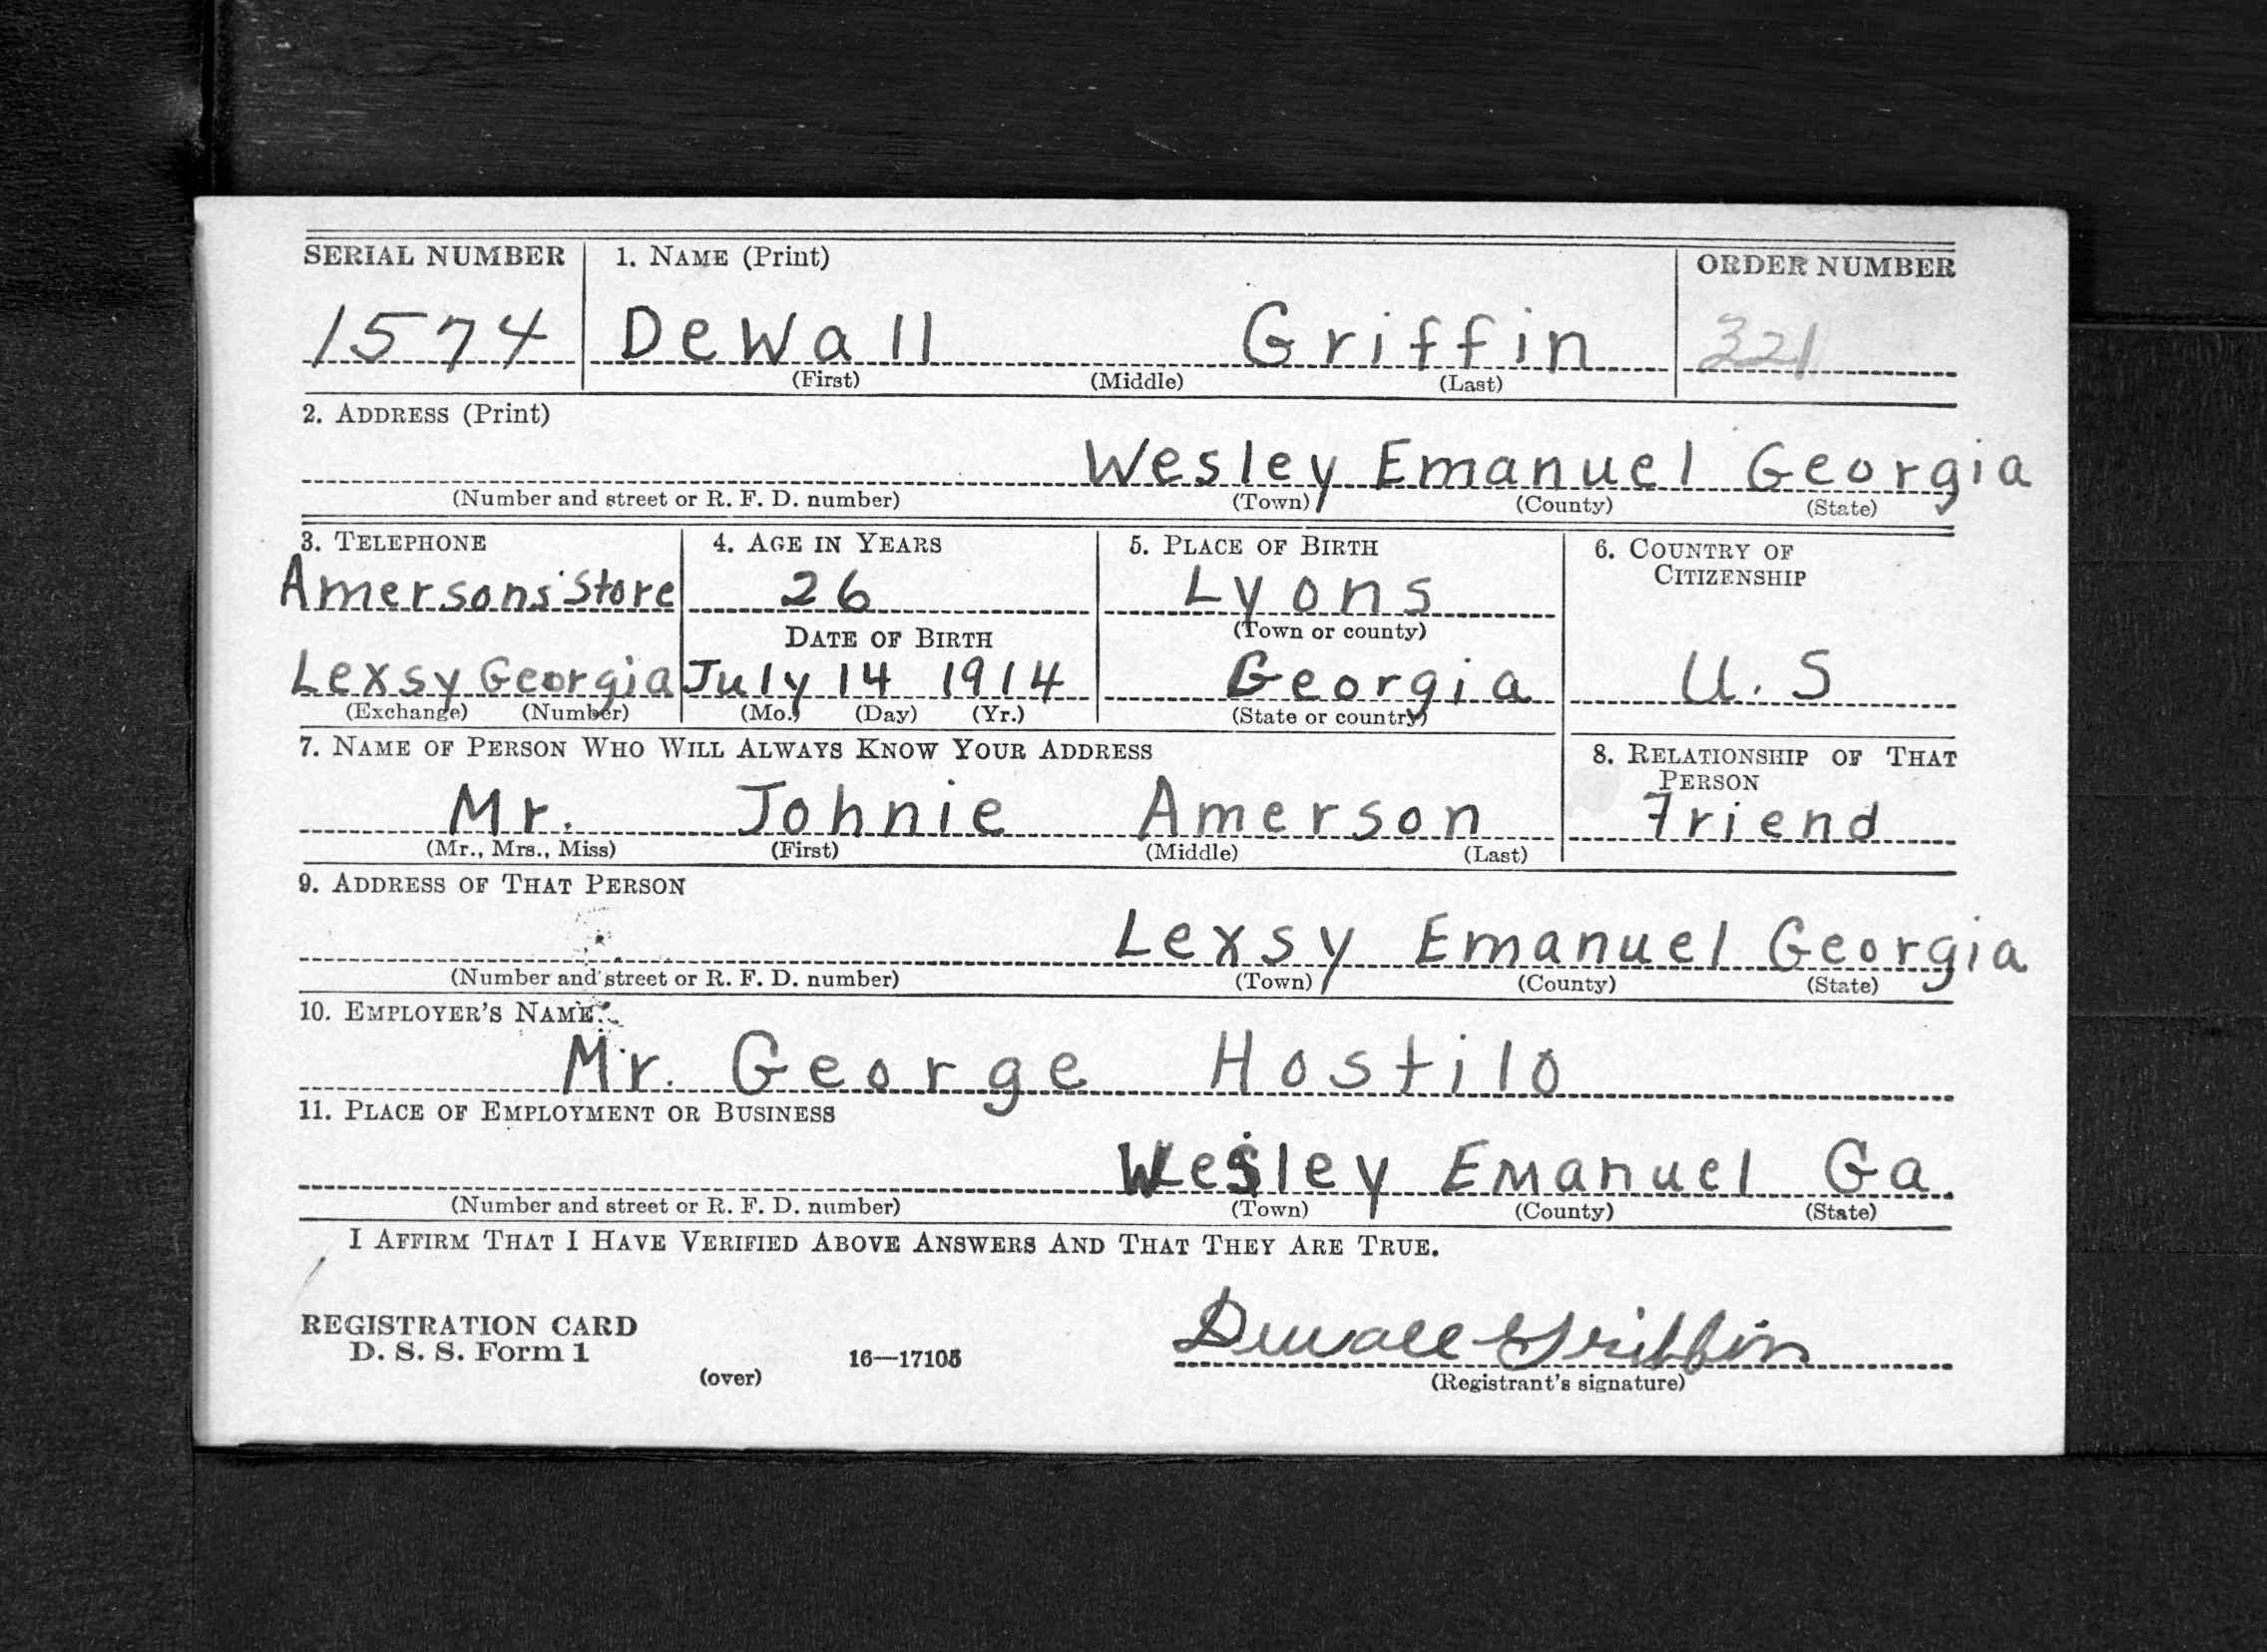 SERIAL NUMBER 1. NAME (Print) ORDER NUMBER
1574 DeWall Griffin 321
(First) (Middle) (Last)
2. ADDRESS (Print)
Wesley Emanuel Georgia
(Number and street or R. F. D. number) (Town) (County) (State)
3. TELEPHONE 4. AGE IN YEARS 5. PLACE OF BIRTH 6. COUNTRY OF
CITIZENSHIP
Amersons' Store 26 Lyons
DATE OF BIRTH (Town or county)
Lexsy Georgia July 14 1914 Georgia U.S
(Exchange) (Number) (Mo.) (Day) (Yr.) (State or country)
7. NAME OF PERSON WHO WILL ALWAYS KNOW YOUR ADDRESS 8. RELATIONSHIP OF THAT
PERSON
Mr. Johnie Amerson Friend
(Mr., Mrs., Miss) (First) (Middle) (Last)
9. ADDRESS OF THAT PERSON
Lexsy Emanuel Georgia
(Number and street or R. F. D. number) (Town) (County) (State)
10. EMPLOYER'S NAME
Mr. George Hostilo
11. PLACE OF EMPLOYMENT OR BUSINESS
Wesley Emanuel Ga.
(Number and street or R. F. D. number) (Town) (County) (State)
I AFFIRM THAT I HAVE VERIFIED ABOVE ANSWERS AND THAT THEY ARE TRUE.
REGISTRATION CARD
D. S. S. Form 1
(over) 16—17105
Dewall Griffin
(Registrant's signature)